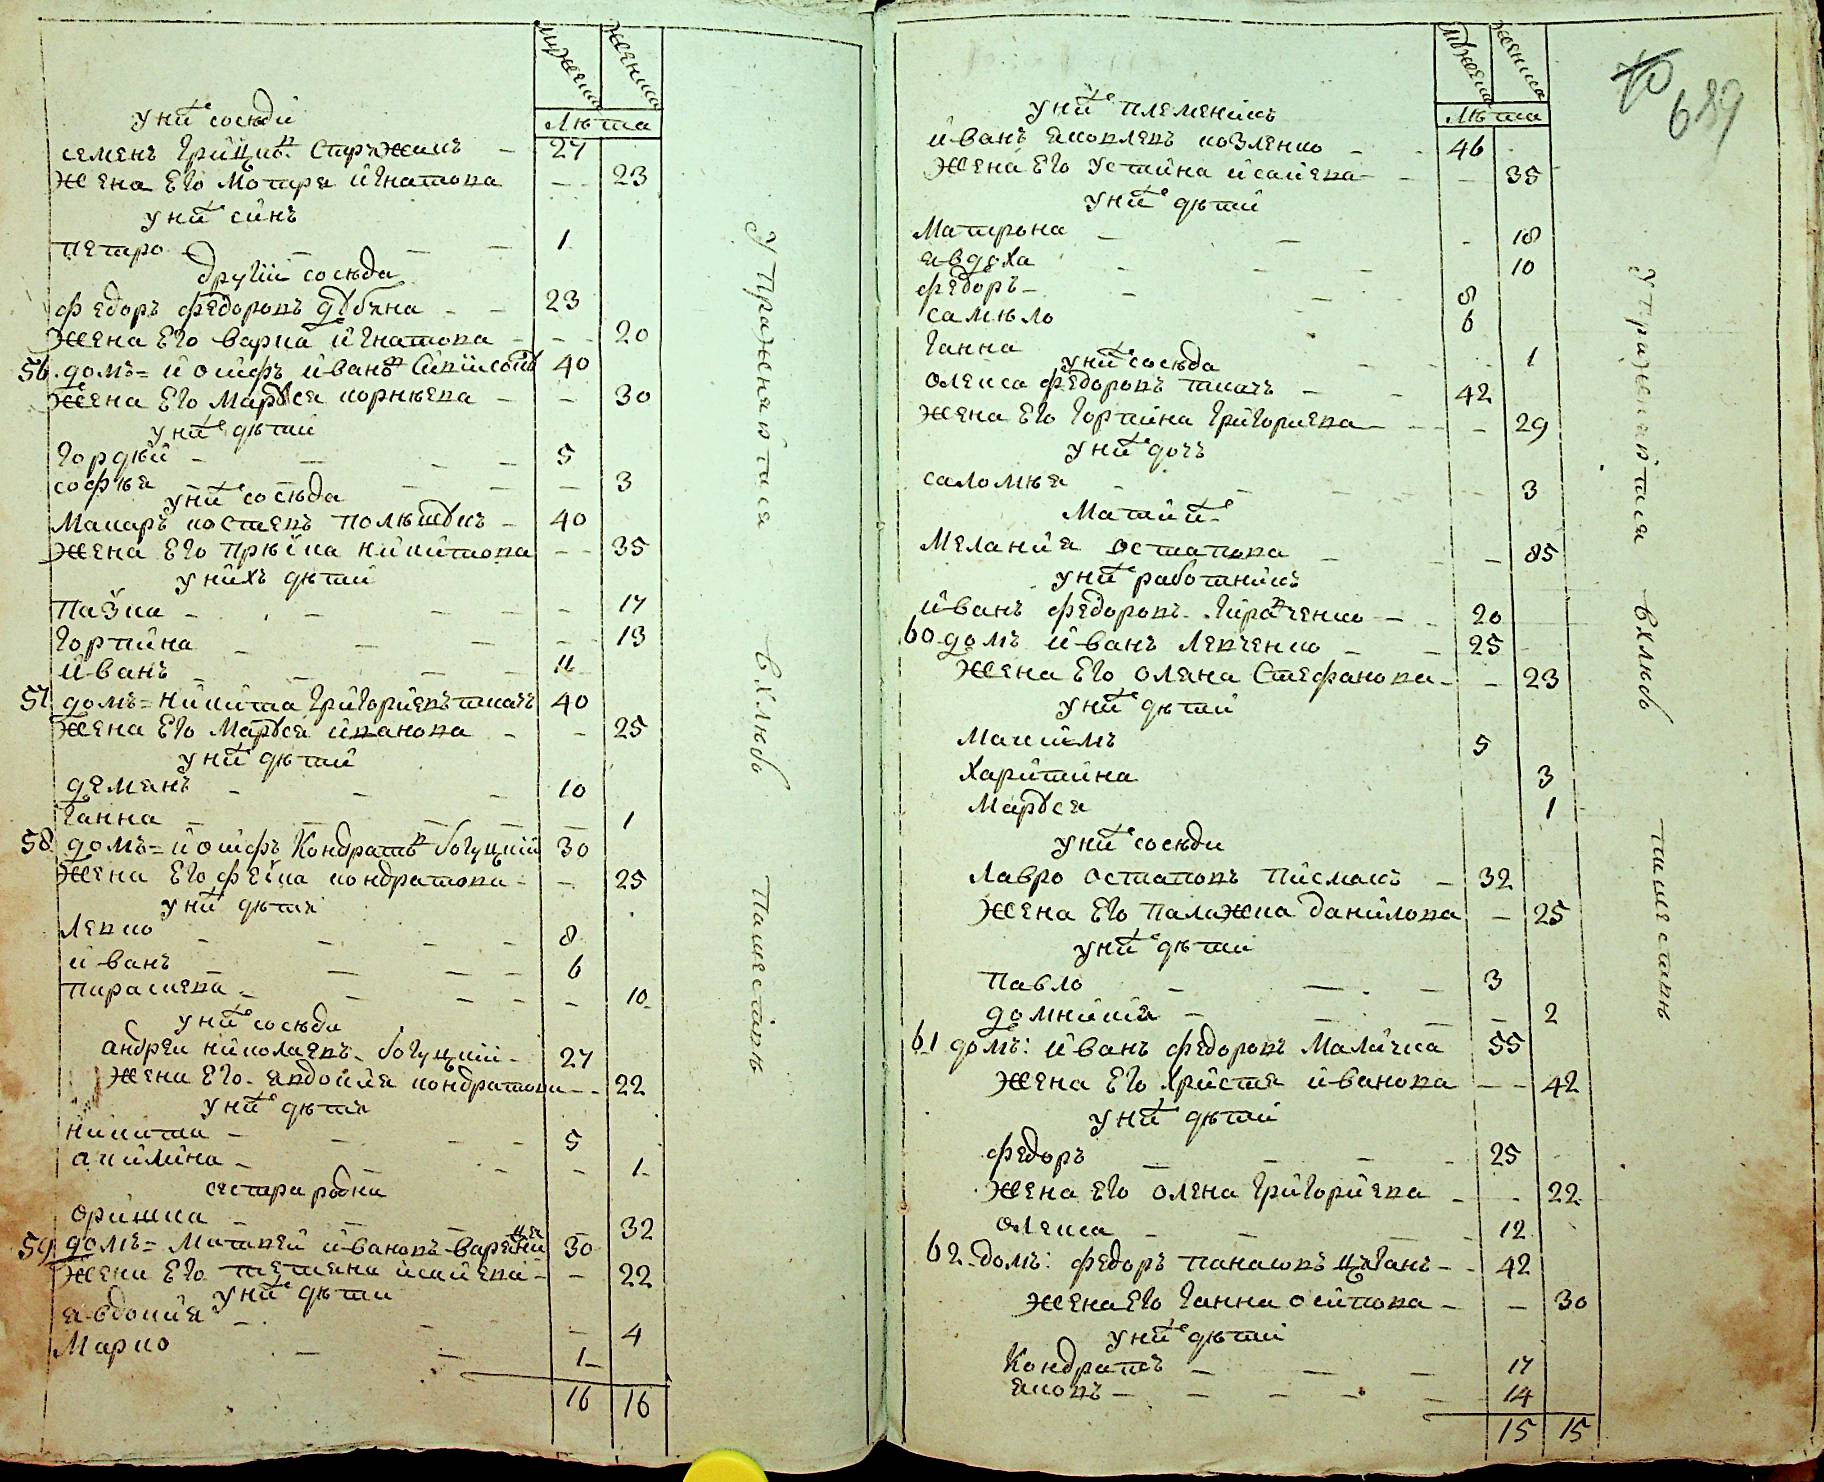 мужеска женска
лѣта
у них сосѣди
семенъ Грицивъ Стрижакъ - 27
жена Его Мотря игнатова - - 23
у них синъ
петро - - - - 1
другий сосѣда
федоръ федоровъ дубина - - 23
жена Его варка игнатова - - - 20
56 домъ = иосифъ ивановъ 40
жена Его Маруся корнѣева - - 30
у них дѣти
Гордѣй - - - - 5
софѣя - - - - 3
у них сосѣда
Макаръ костевъ полѣщукъ - 40
жена Его никитова - - 35
у нихъ дѣти
- - - - - 17
Горпина - - - - 13
иванъ - - - - 11
57 домъ = никита Григориевъ ткачъ 40
жена Его Маруся иванова - - 25
у них дѣти
демянъ - - - 10
Ганна - - - - - 1
58 домъ = иосифъ Кондратовъ богуцкий 30
жена Его феска кондратова - - 25
у них дѣти
Левко - - - - 8
иванъ - - - - 6
параскева - - - - - 10
у них сосѣди
андрей николаевъ богуцкий - 27
жена Его евдокия кондратова - - 22
у них дѣти
никита - - - - 5
акилина - - - - - 1
сестра родна
оришка - - - - 32
59 домъ = Матвей ивановъ 30
жена Его тетяна исакева - - 22
у них дѣти
евдокия - - - - 4
Марко - - 1
16 16
У пражнавтися вхлѣбо пашествѣ
689
мужеска женска
лѣта
у них племеникъ
иванъ яковлевъ козленко - - 46
жена Его Устина исакева - - - 35
у них дѣти
Матрона - - - 18
явдоха - - - 10
федоръ - - - - 8
самѣло 6
Ганна - - 1
у них сосѣда
олекса федоровъ ткачъ - - 42
жена Его Горпина Григориева - - - - 29
у них дочъ
саломѣя - - - - - 3
Мати их
Мелания остапова - - - 85
у них работникъ
иванъ федоровъ - - 20
60 домъ иванъ Левченко - - 25
жена Его олена Стефанова - - 23
у них дѣти
Максимъ 5
Харитина 3
Маруся 1
у них сосѣди
Лавро остаповъ писмакъ - 32
жена Его палажка данилова - 25
у них дѣти
Павло - - - - 3
домникия - - - - 2
61 домъ: иванъ федоровъ Маличка 55
жена Его Христя иванова - - - 42
у них дѣти
федоръ - - - - 25
жена Его олена Григориева - - 22
олекса - - - - 12
62 домъ: федоръ панасовъ циганъ - - 42
жена Его Ганна осипова - - 30
у них дѣти
Кондратъ - - - 17
яковъ - - - - - 14
15 15
У пражнявтися вхлѣбо пашествѣ